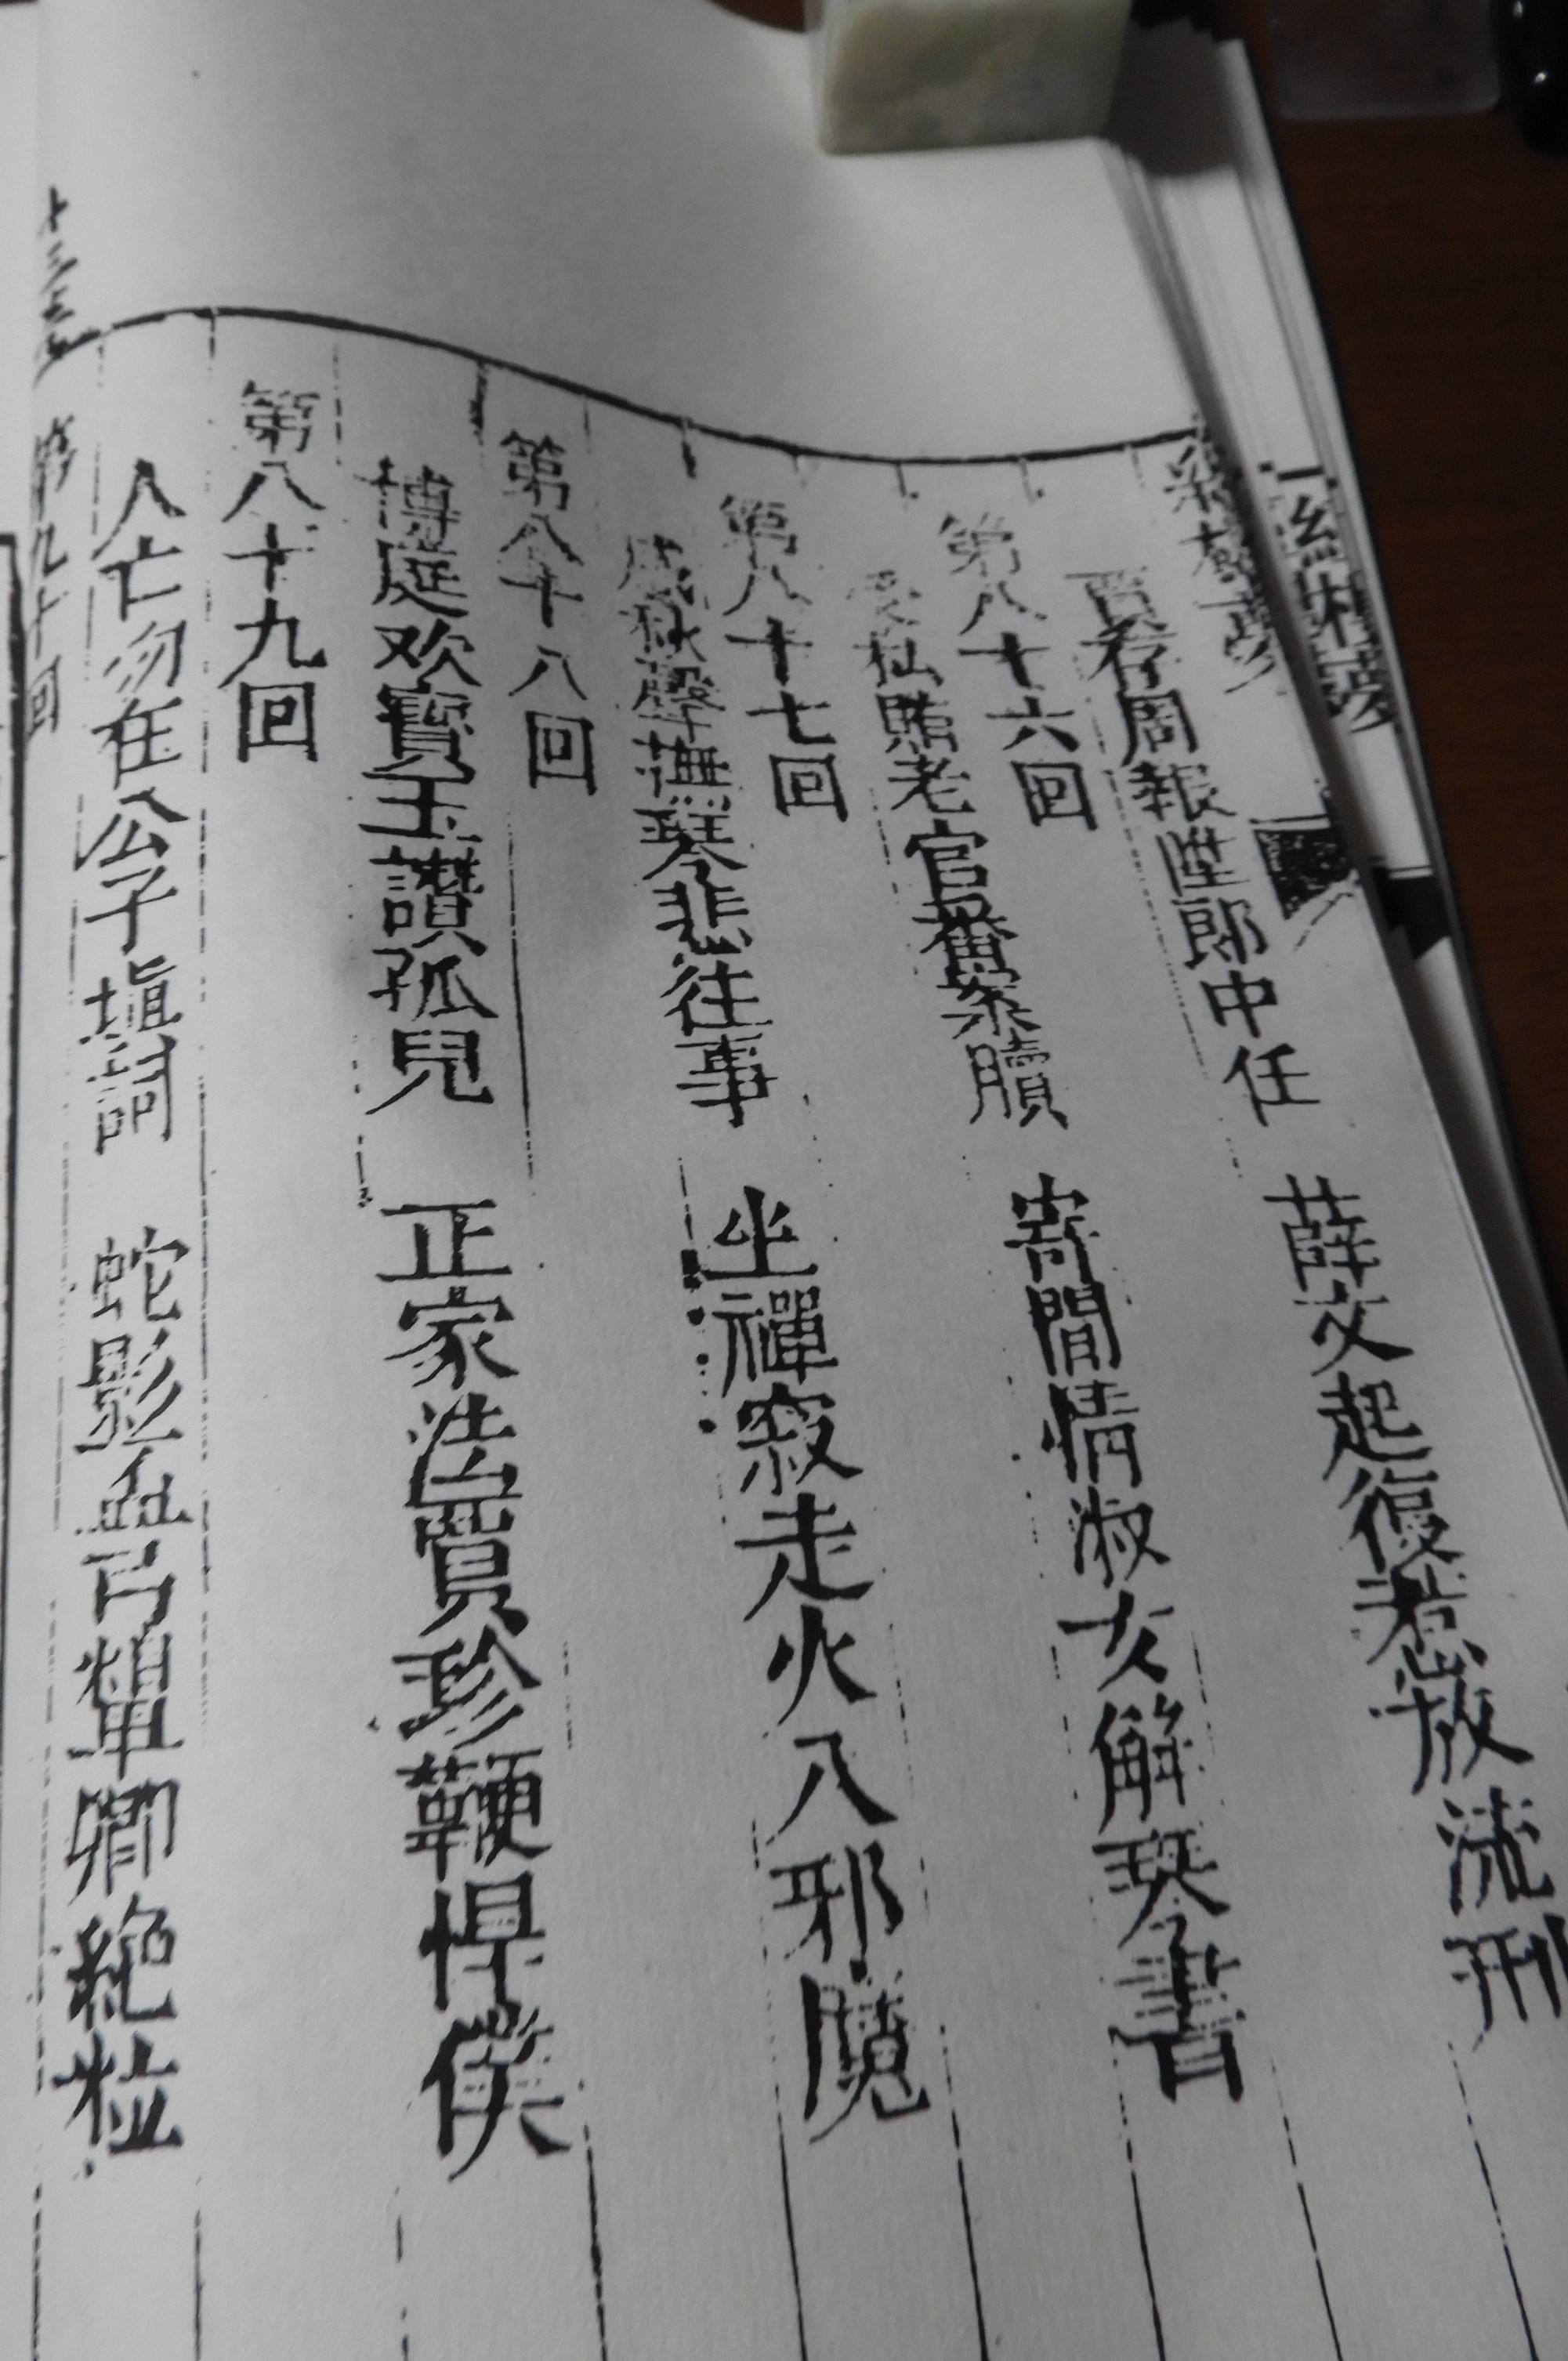 紅樓夢
賈存周報陞郎中任 薛文起復惹放流刑
第八十六回
受私賄老官番案牘 寄閒情淑女解琴書
第八十七回
感秋聲撫琴悲往事 坐禪寂走火入邪魔
第八十八回
博庭欢寶玉讃孤兒 正家法賈珍鞭悍僕
第八十九回
人亡勿在公子塡詞 蛇影盃弓顰卿絶粒
第九十回